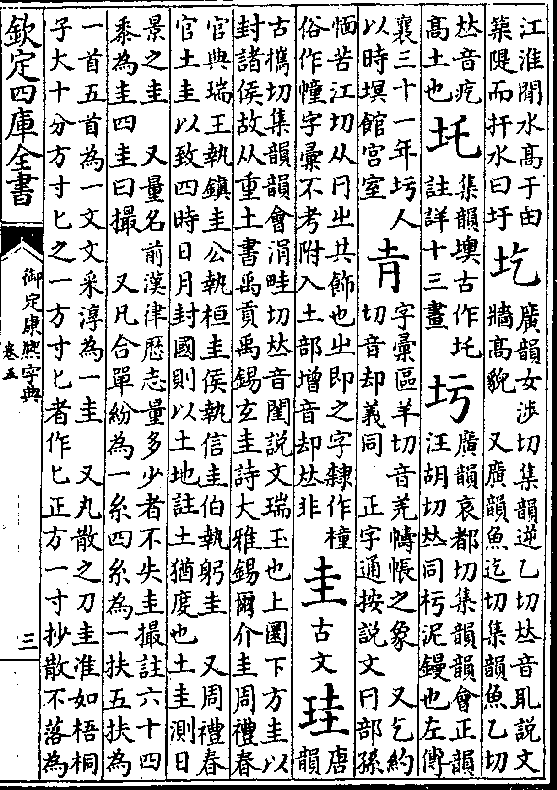 江淮間水高于田
築隄而扞水曰圩
圪
廣韻女涉切集韻逆乙切𠀤音耴說文
牆高貌 又廣韻魚迄切集韻魚乙切
𠀤音疙
高土也
圫
集韻墺古作圫
註詳十三畫
圬
廣韻哀都切集韻韻會正韻
汪胡切𠀤同杇泥鏝也左傳
襄三十一年圬人
以時塓館宮室
字彙區羊切音羌幬帳之象 又乞約
切音却義同 正字通按說文冃部孫
愐苦江切从冃㞢其飾也㞢即之字隸作橦
俗作幢字彙不考附入土部增音却𠀤非
圭
古文
珪
唐
韻
古攜切集韻韻會涓畦切𠀤音閨說文瑞玉也上圜下方圭以
封諸侯故从重土書禹貢禹錫玄圭詩大雅錫爾介圭周禮春
官典瑞王執鎮圭公執桓圭侯執信圭伯執躬圭 又周禮春
官土圭以致四時日月封國則以土地註土猶度也土圭測日
景之圭 又量名前漢律歷志量多少者不失圭撮註六十四
黍為圭四圭曰撮 又凡合單紛為一糸四糸為一扶五扶為
一首五首為一文文采淳為一圭 又丸散之刀圭准如梧桐
子大十分方寸匕之一方寸匕者作匕正方一寸抄散不落為
欽定四庫全書
御定康熙字典
卷五
三